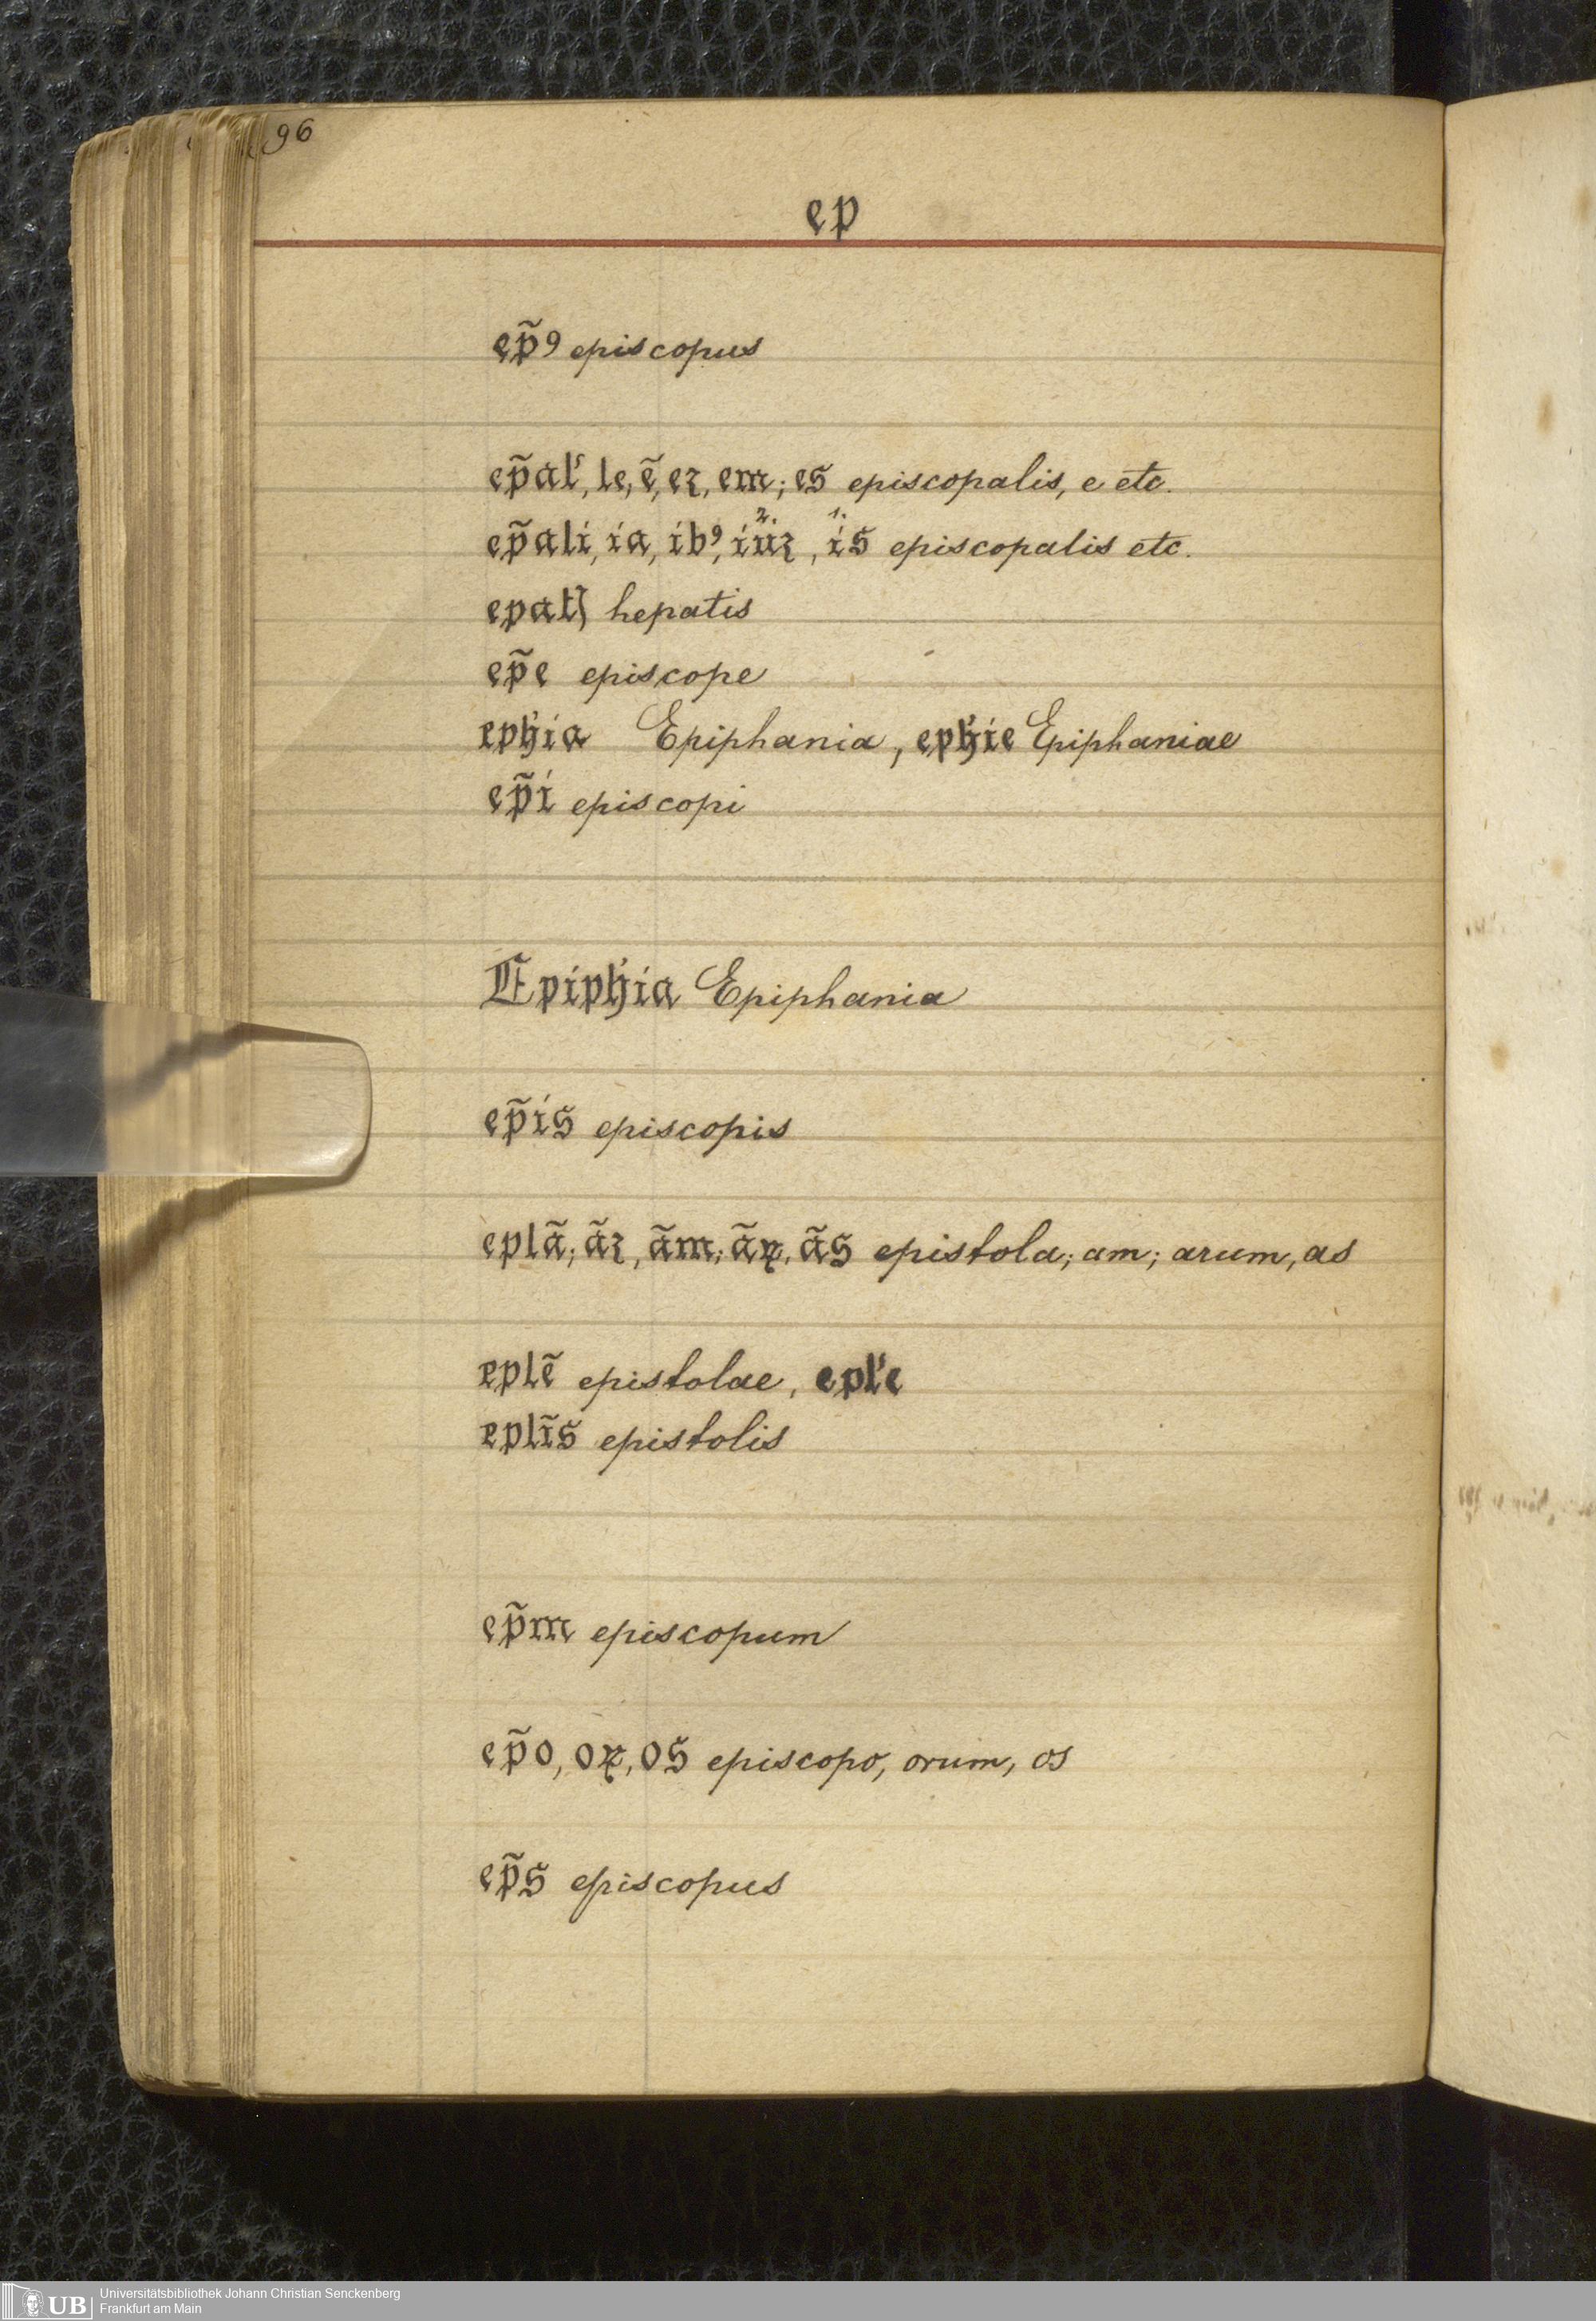 96
ep
ep̃9 episcopus
ep̃al᾽, le, ẽ, eꝛ, em; es episcopalis, e etc.
2. 1.
ep̃ali, ia, ib⁹, iũꝛ, is episcopalis etc.
epatꝭ hepatis
ep̃e episcope
ephia Epiphania, ephie Epiphaniae
ep̃i episcopi
Epiphia Epiphania
ep̃is episcopis
eplã; ãꝛ, ãm; ãꝝ, ãs epistola; am; arum, as
eplẽ epistolae, epl᾽e
eplĩs epistolis
ep̃m episcopum
ep̃o, oꝝ, os episcopo, orum, os
ep̃s episcopus
UB Universitätsbibliothek Johann Christian Senckenberg
Frankfurt am Main